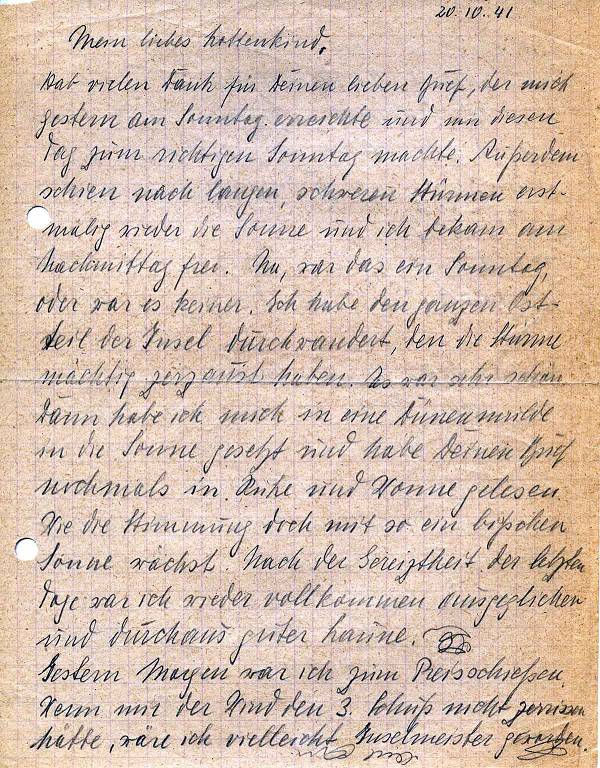 20.10.41
Mein liebes Lottenkind.
Hab vielen Dank für Deinen lieben Brief, der mich
gestern am Sonntag erreichte und mir diesen
Tag zum richtigen Sonntag machte. Außerdem
schien nach langen, schweren Stürmen erst-
malig wieder die Sonne und ich bekam am
Nachmittag frei. Na, war das ein Sonntag,
oder war es keiner. Ich habe den ganzen Ost-
teil der Insel durchwandert, den die Stürme
mächtig zerzaust haben. Es war sehr schön
Dann habe ich mich in eine Dünenmulde
in die Sonne gesetzt und habe Deinen Brief
nochmals in Ruhe und Wonne gelesen
Wie die Stimmung doch mit so ein bißchen
Sonne wächst. Nach der Gereiztheit der letzten
Tage war ich wieder vollkommen ausgeglichen
und durchaus guter Laune.
Gestern Morgen war ich zum Preisschießen
Wenn mir der Wind den 3. Schuß nicht zerrissen
hätte, wäre ich vielleicht Inselmeister geworden.